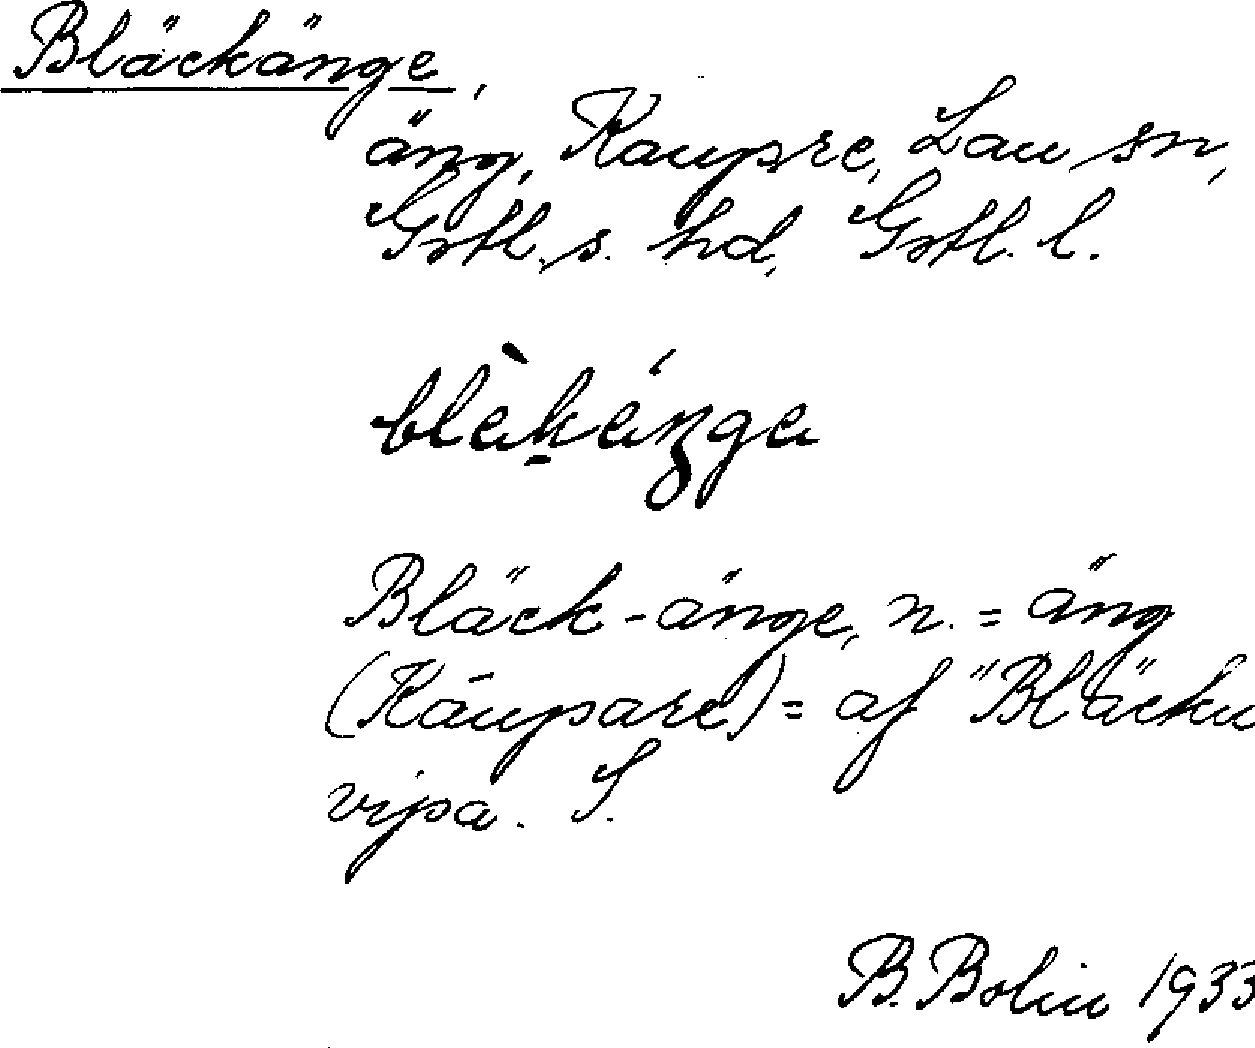 Bläckänge,
äng, Kaupre, Lau sn,
Gotl. s. hd, Gotl. l.
blèkánge
Bläck-änge, n. = äng
(Käupare) = af "Bläcku
vipa. S.
B. Bolin 1933